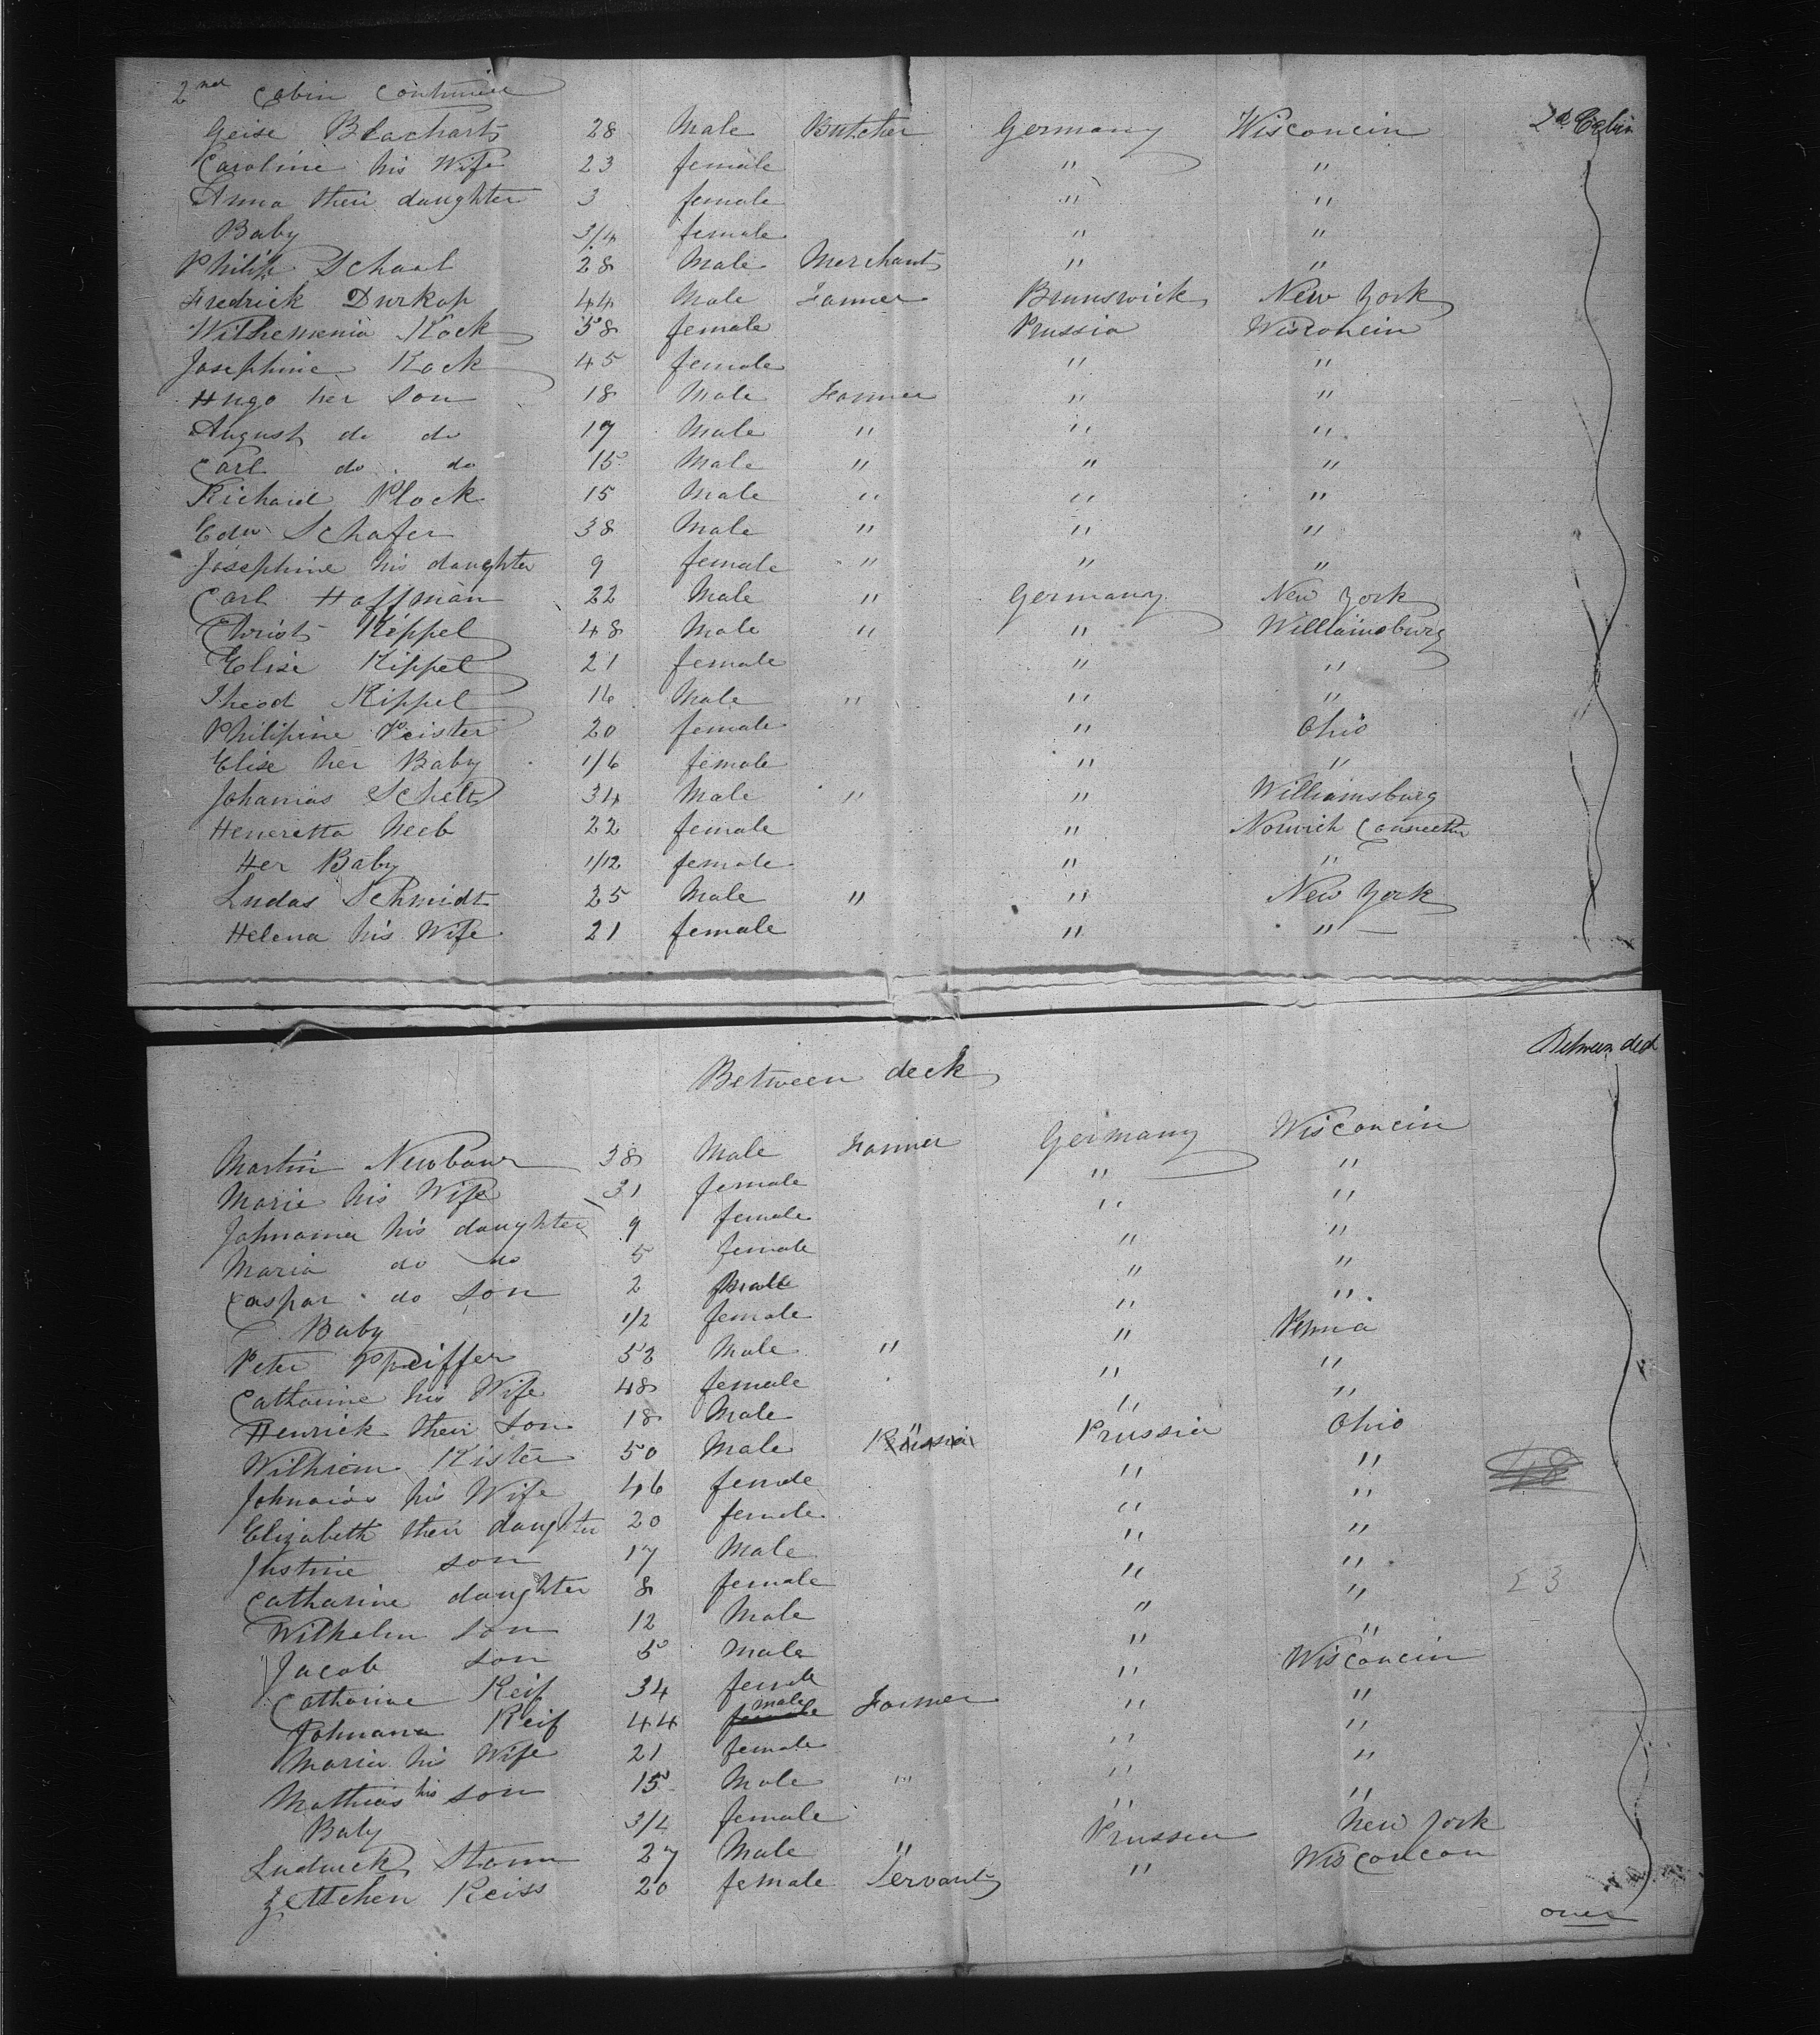 2nd Cabin Continued
Geise Blacharts 28 Male Butcher Germany Wisconcin 2d Cabin
Caroline his Wife 23 female " "
Anna their daughter 3 female " "
Baby 3/4 female " "
Philip Schaal 28 Male Merchant " "
Fredrick Durkop 44 Male Farmer Brunswick New York
Wilhemenia Kock 38 female Prussia Wisconcin
Josephine Kock 45 female " "
Hugo her Son 18 Male Farmer " "
August do do 17 Male " " "
Carl do do 15 Male " " "
Richard Plock 15 Male " " "
Edw Schafer 38 Male " " "
Josephine his daughter 9 female " " "
Carl Hoffman 22 Male " Germany New York
Christ Kippel 48 Male " " Williamsburg
Elise Kippel 21 female " "
Theod Kippel 16 Male " " "
Philipine Peister 20 female " Ohio
Elise her Baby 1/6 female " "
Johanias Schelt 34 Male " " Williamsburg
Heneretta Neeb 22 female " Norwich Connecttn
Her Baby 1/12 female " "
Ludas Schmidt 25 Male " " New York
Helena his Wife 21 female " "
Between deck Between deck
Martin Newbaur 38 Male Farmer Germany Wisconcin
Marie his Wife 31 female " "
Johnanna his daughter 9 female " "
Maria do do 5 female " "
Caspar do Son 2 Male " "
Baby 1/2 female " "
Peter Pfeiffer 52 Male " " Penna
Catharine his Wife 48 female " "
Henrick their Son 18 Male " "
Wilhiem Kister 50 Male Prussia Ohio
Johnaias his Wife 46 female " "
Elizabeth their daughter 20 female " "
Justine son 17 Male " "
Catharine daughter 8 female " "
Wilhelm Son 12 Male " "
Jacob son 5 Male " "
Catharine Reif 34 female " Wisconcin
Johnana Reif 44 male Farmer " "
Maria his Wife 21 female " "
Mathias his son 15 Male " " "
Baby 3/4 female " "
Ludwick Stamm 27 Male " Prussia New York
Jettchen Reiss 20 female Servant " Wisconcon
48
23
over